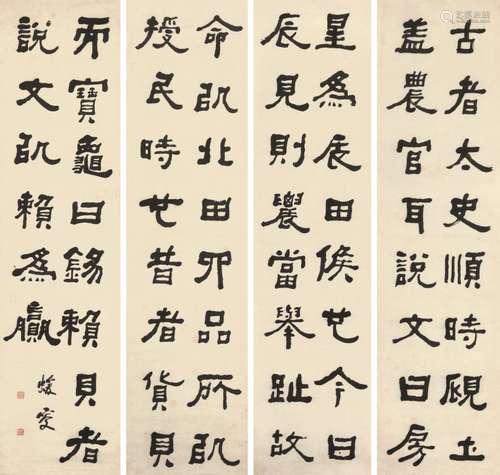 古者太史順時覛土
盖農官耳說文曰房
星為辰田候也今曰
辰見則農當舉趾故
命㠯北田卯品所㠯
授民時也昔者貨貝
而寶龜曰錫賴貝者
說文㠯賴為贏
蝯叟